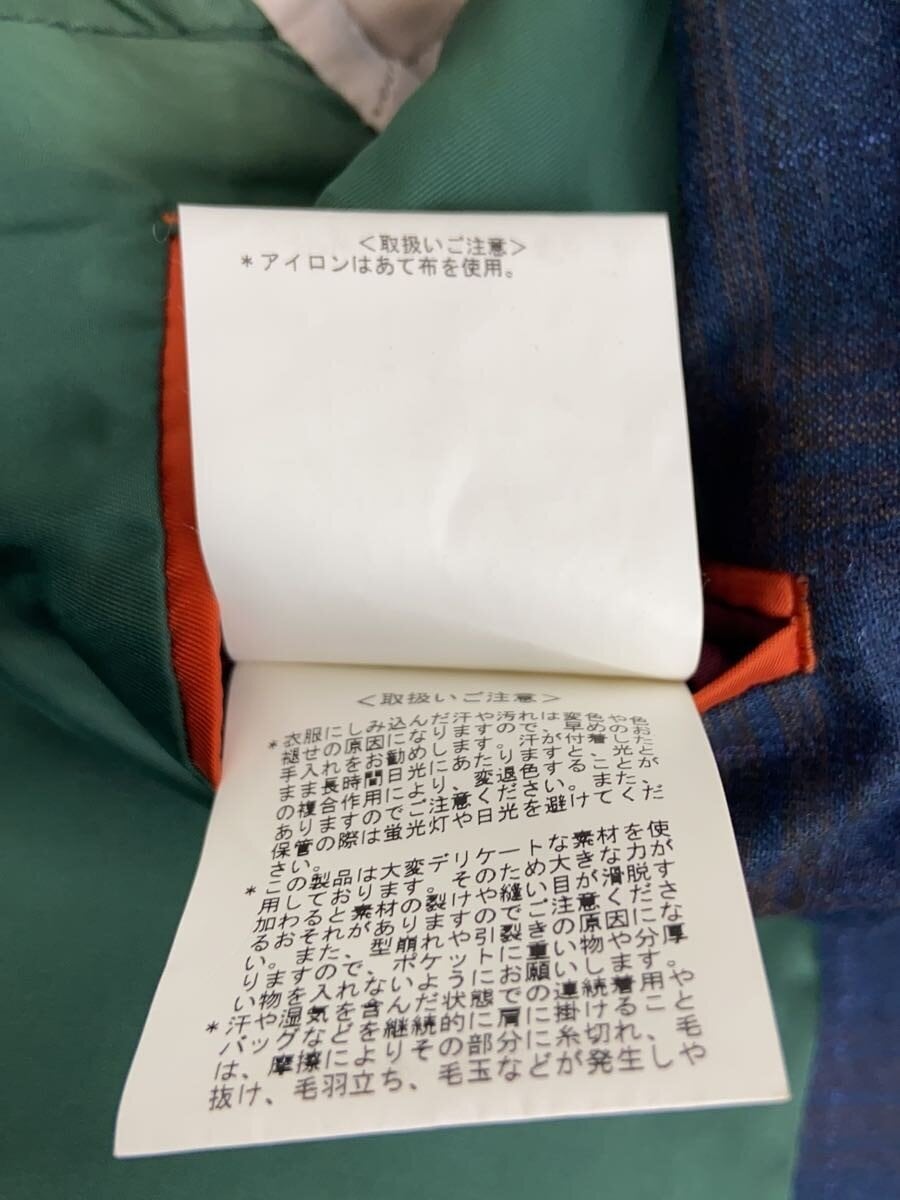 ＜取扱いご注意＞
＊アイロンはあて布を使用。
＜取扱いご注意＞
＊衣服にしみ込んだ汗や汚れは変色や色
褪せの原因になりますので、早めのお
手入れをお勧めします。汗が付着したま
ま長時間日光にあたりますと、光と汗
の複合作用により、変退色することが
ありますのでご注意ください。また、
保管の際は蛍光灯や日光を避けてくだ
さい。
＊この製品は大変デリケートな素材を使
用しております。そのため大きな力が
加わると素材の裂けや縫い目が滑脱す
るおそれがありますのでご注意くださ
い。また、型崩れや引裂きの原因にな
りますので、ポケットに重い物や分厚
い物を入れないようにお願いします。
＊汗や湿気を含んだ状態での連続着用や
バッグなどを継続的に肩に掛けること
は、摩擦によりその部分に糸切れ、毛
抜け、毛羽立ち、毛玉などが発生しや